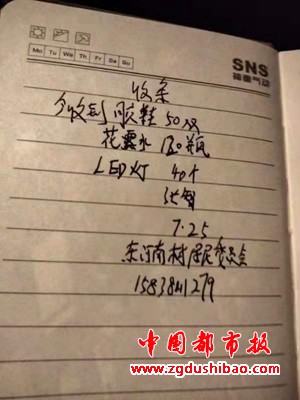 SNS
神驰气动
Mo Tu We Th Fr Sa Su
收条
今收到 胶鞋 50双
花露水 120瓶
LED灯 40个
张智
7.25
东河南村居民
15838411279
中国都市报
www.zgdushibao.com